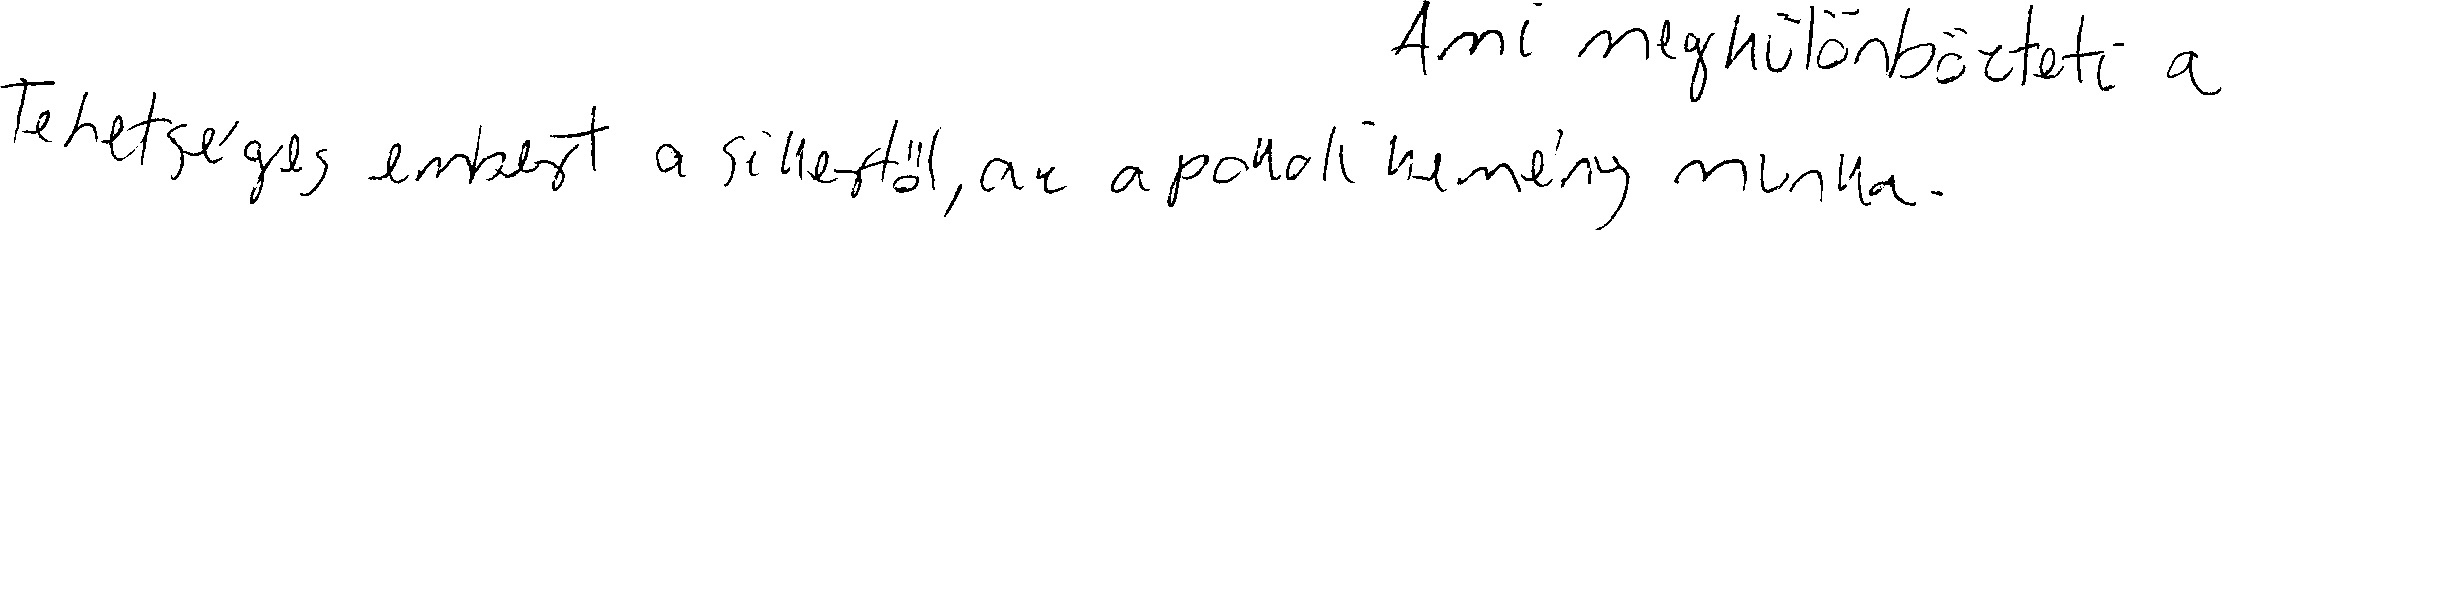 Ami megkülönbözteti a
Tehetséges embert a sikertől, az a pokoli kemény munka.